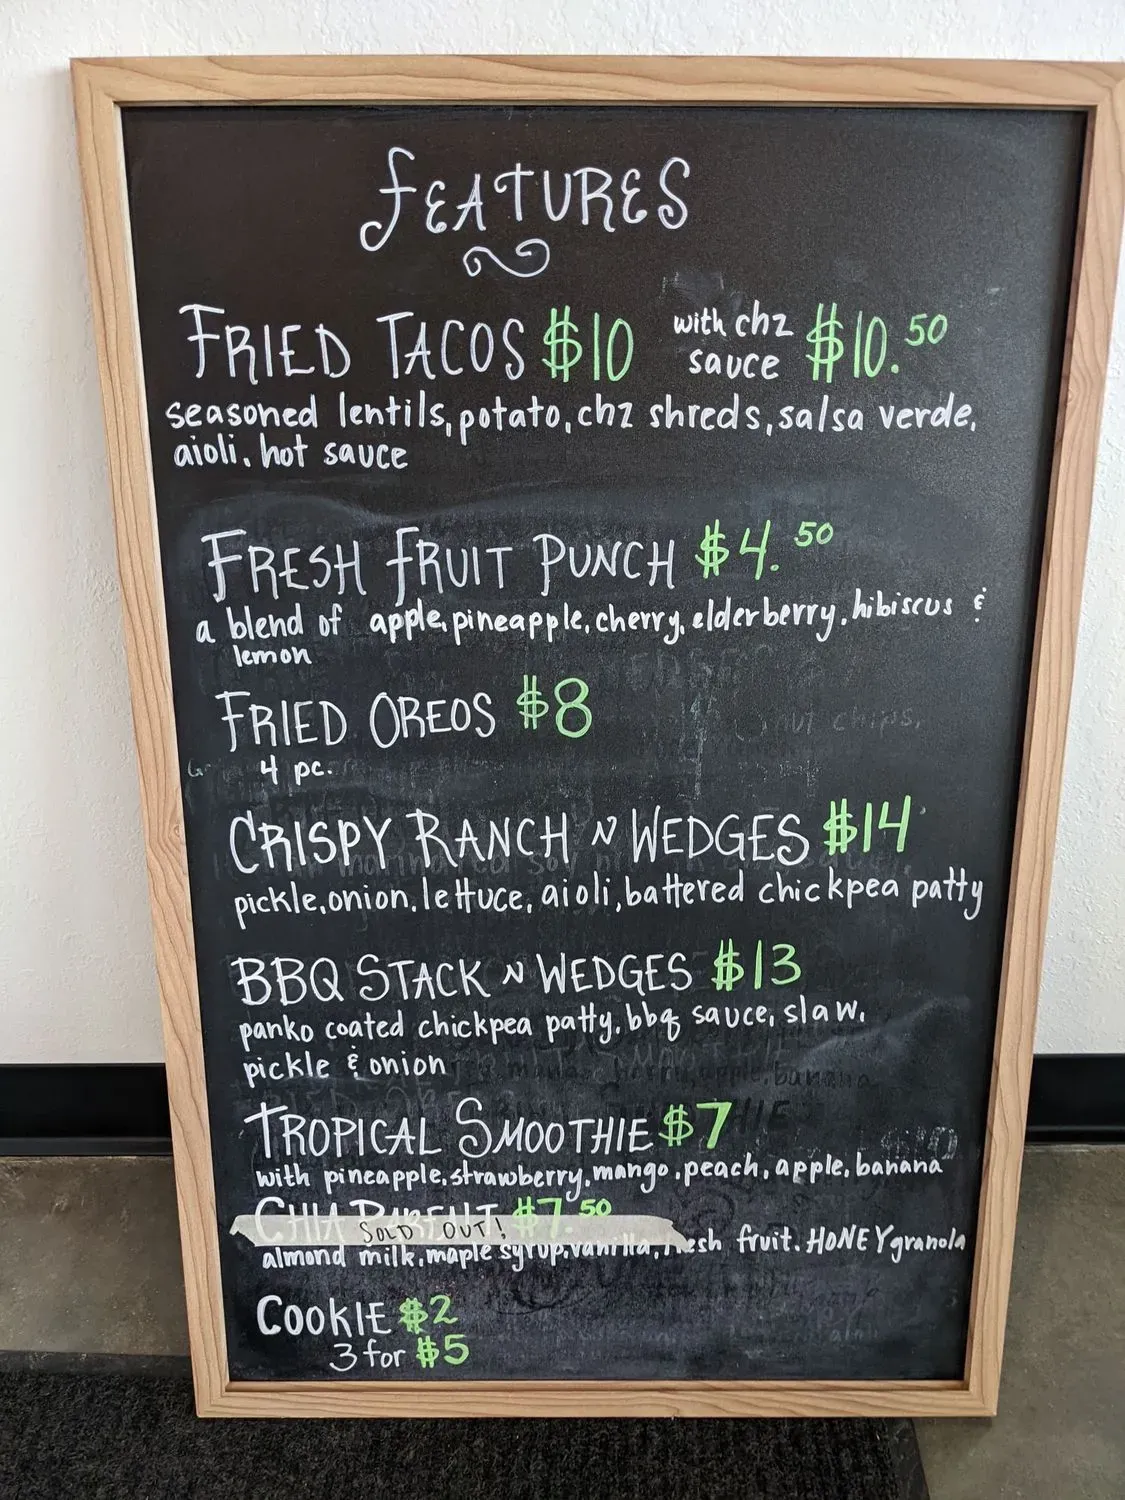 FEATURES
FRIED TACOS $10 with chz sauce $10.50
seasoned lentils, potato, chz shreds, salsa verde,
aioli, hot sauce
FRESH FRUIT PUNCH $4.50
a blend of apple, pineapple, cherry, elderberry, hibiscus &
lemon
FRIED OREOS $8
4 pc.
CRISPY RANCH N WEDGES $14
pickle, onion, lettuce, aioli, battered chickpea patty
BBQ STACK N WEDGES $13
panko coated chickpea patty, bbq sauce, slaw,
pickle & onion
TROPICAL SMOOTHIE $7
with pineapple, strawberry, mango, peach, apple, banana
CHIA PARFAIT $7.50
SOLD OUT!
almond milk, maple syrup, vanilla, fresh fruit. HONEY granola
COOKIE $2
3 for $5